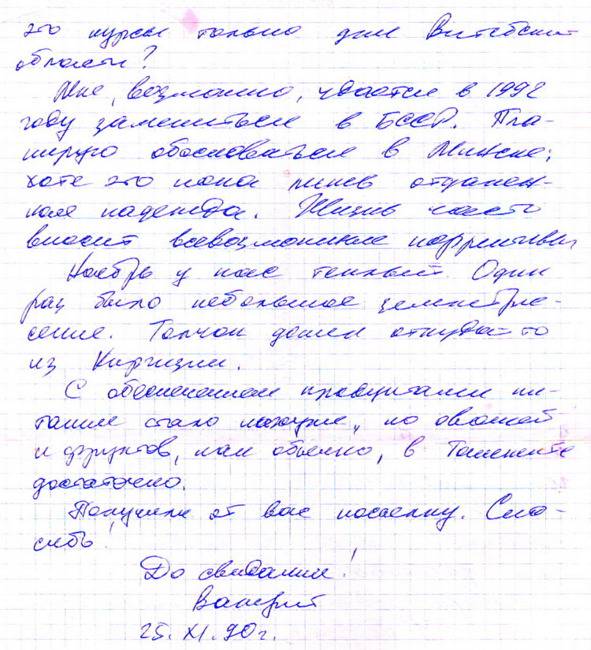 это курсы только для Витебской
области?
Мне, возможно, удастся в 1992
году замениться в БССР. Пла-
нирую обосноваться в Минске;
хотя это пока лишь отдален-
ная надежда. Жизнь часто
вносит всевозможные коррективы
Ноябрь у нас теплый. Один
раз было небольшое землетря-
сение. Толчок дошел откуда-то
из Киргизии.
С обеспечением продуктами пи-
тания стало похуже, но овощей
и фруктов, как обычно, в Ташкенте
достаточно.
Получили от вас посылку. Спа-
сибо!
До свидания!
Валерий
25.XI.90г.